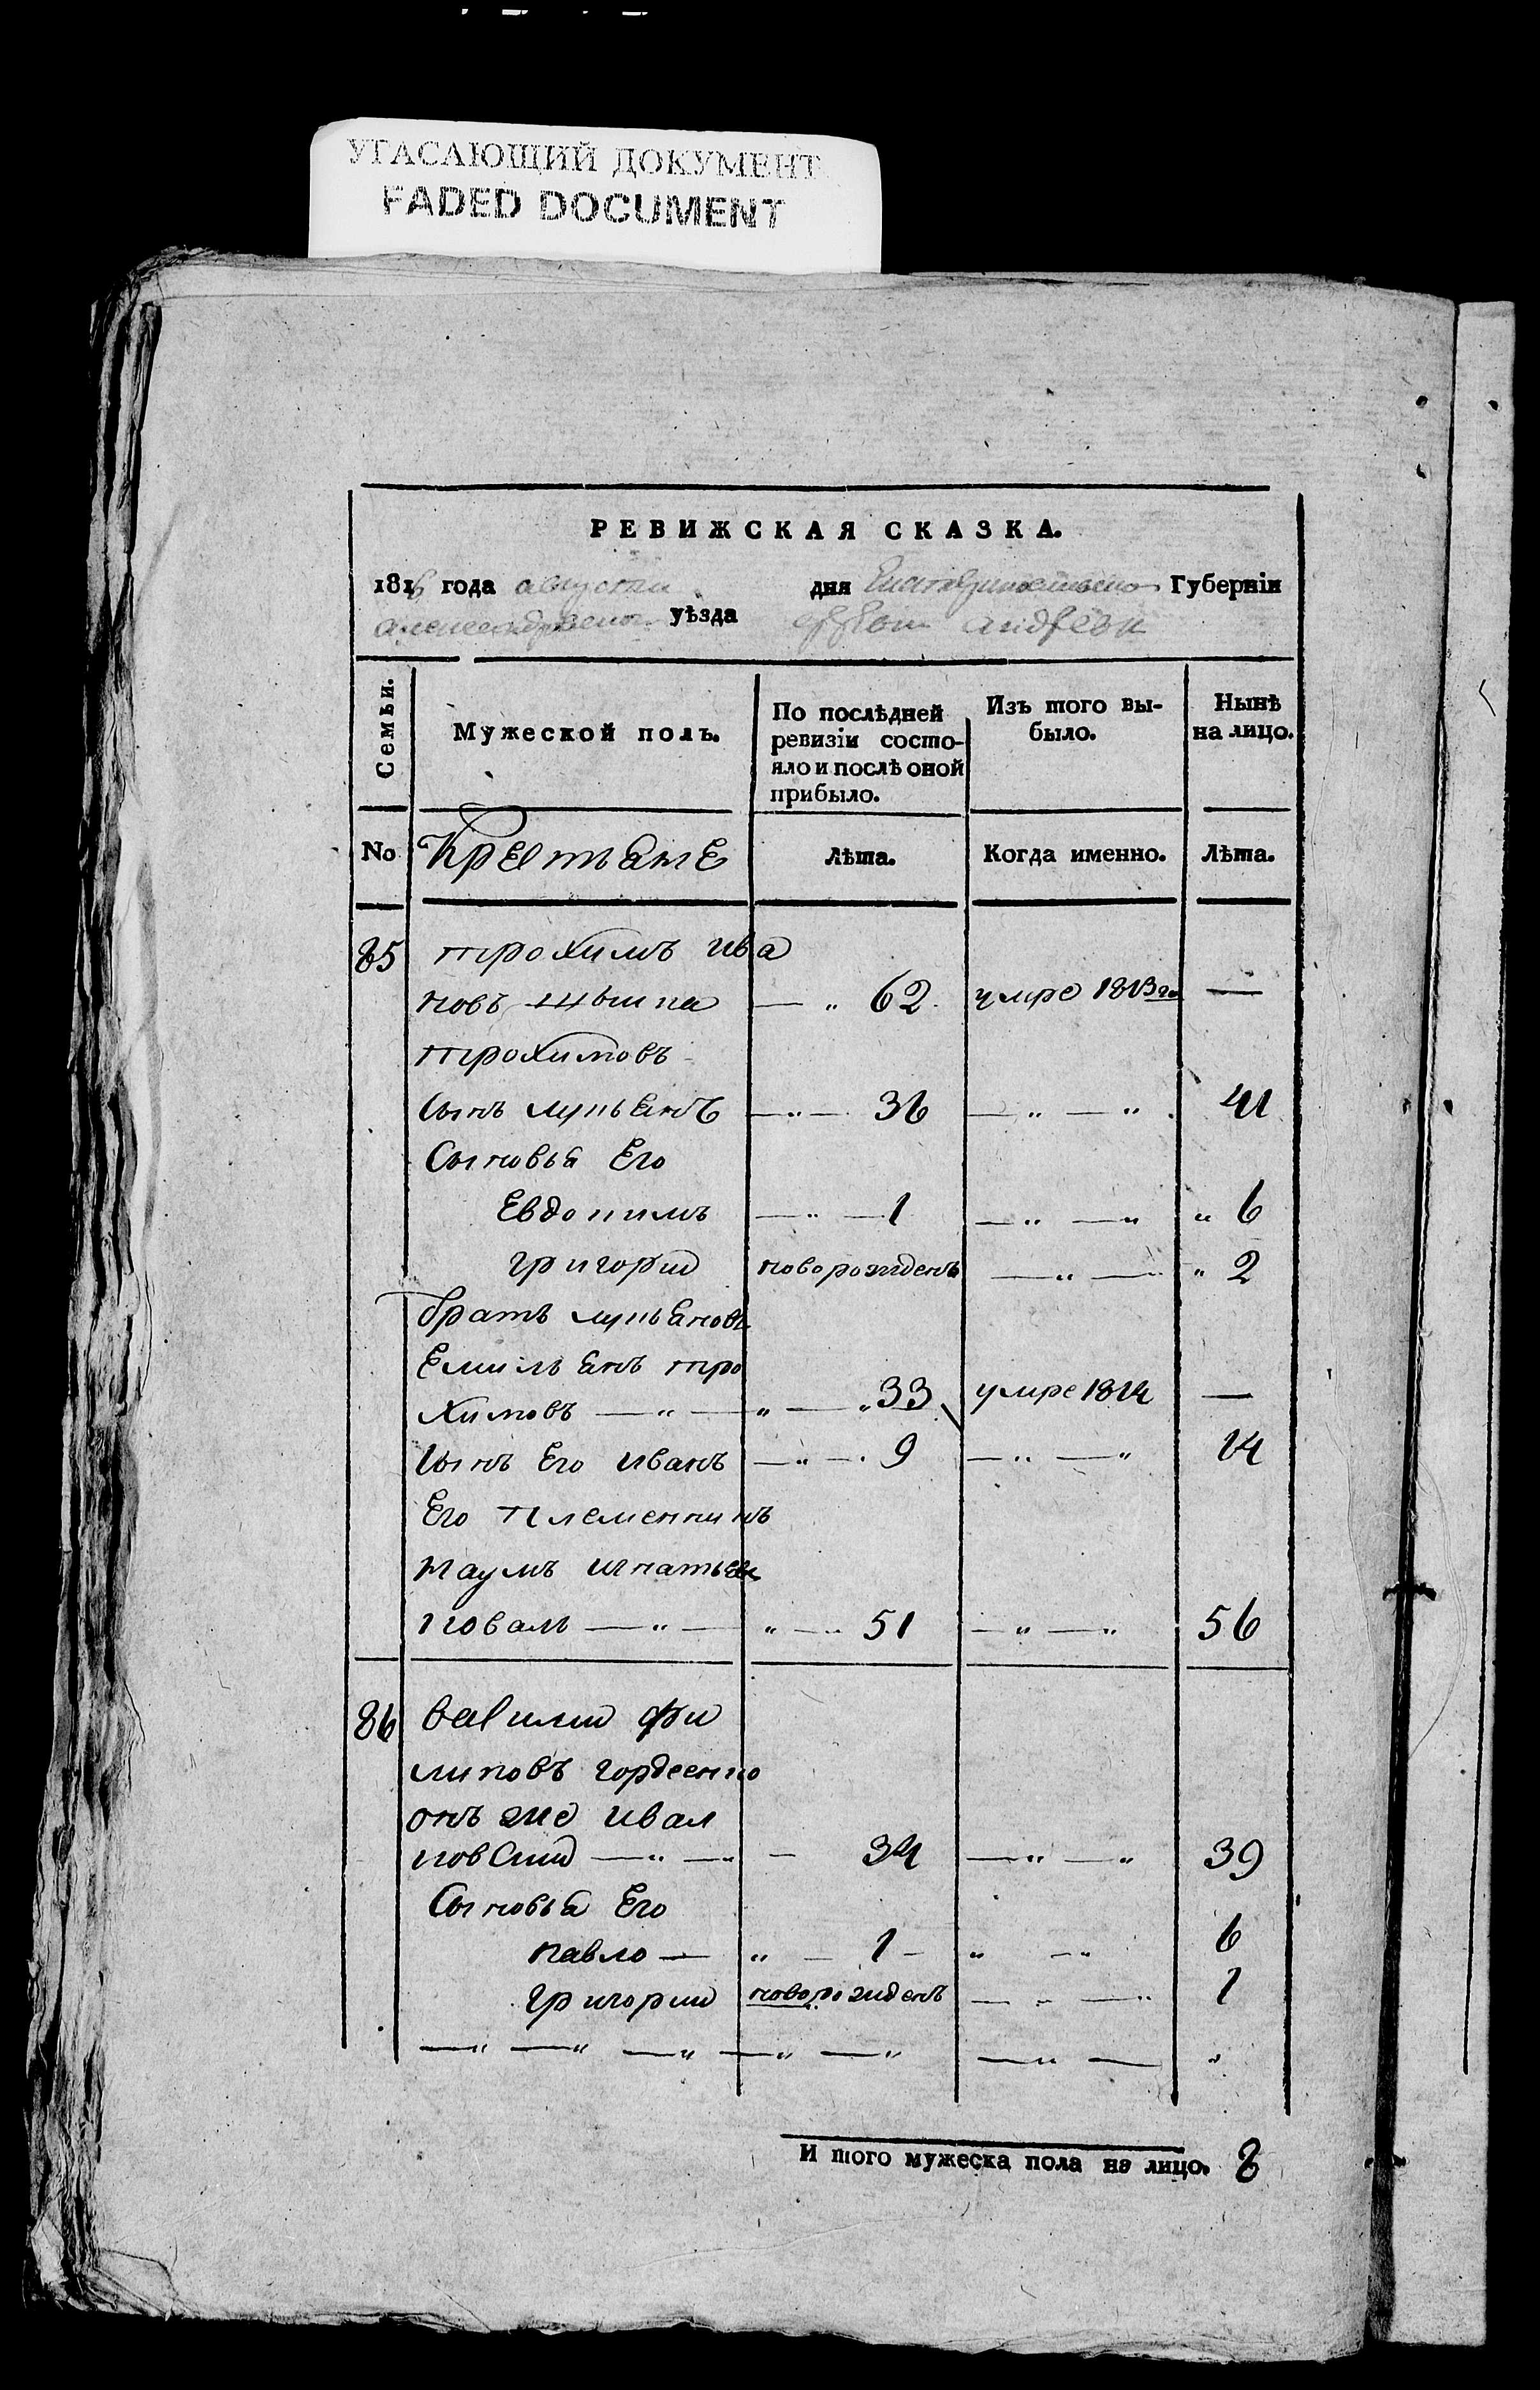 УГАСАЮЩИЙ ДОКУМЕНТ
FADED DOCUMENT
РЕВИЖСКАЯ СКАЗКА.
1816 года августа дня Екатеринославской Губерніи
александровского уѣзда
Семьи.
Мужеской полъ.
По послѣдней ревизіи состояло и послѣ оной прибыло.
Изъ того выбыло.
Нынѣ на лицо.
No Крестьяне Лѣта. Когда именно. Лѣта.
85 трохимъ ива
новъ — „ 62. умре 1813го —
трохимовъ
сынъ лупьянъ — „ — 36 — „ — „ 41
Сыновья Его
Евдокимъ — „ — 1 — „ — „ „ 6
григорий новорожденъ — „ — „ 2
братъ лупьяновъ
Емильянъ тро
химовъ — „ — „ — „ 33 умре 1814 —
сынъ Его иванъ — „ — 9 — „ — „ 14
Его племенникъ
наумъ игнатьев
коваль — „ — „ — 51 — „ — „ 56
86 василий фи
липовъ гордеенко
онъ же ивал
ковский — „ — „ — 34 — „ — „ 39
Сыновья Его
павло — „ — 1 — „ — „ 6
григорий новорожденъ — „ — „ 1
— „ — „ — „ — „ — „ — „ — „
И того мужеска пола на лицо. 8